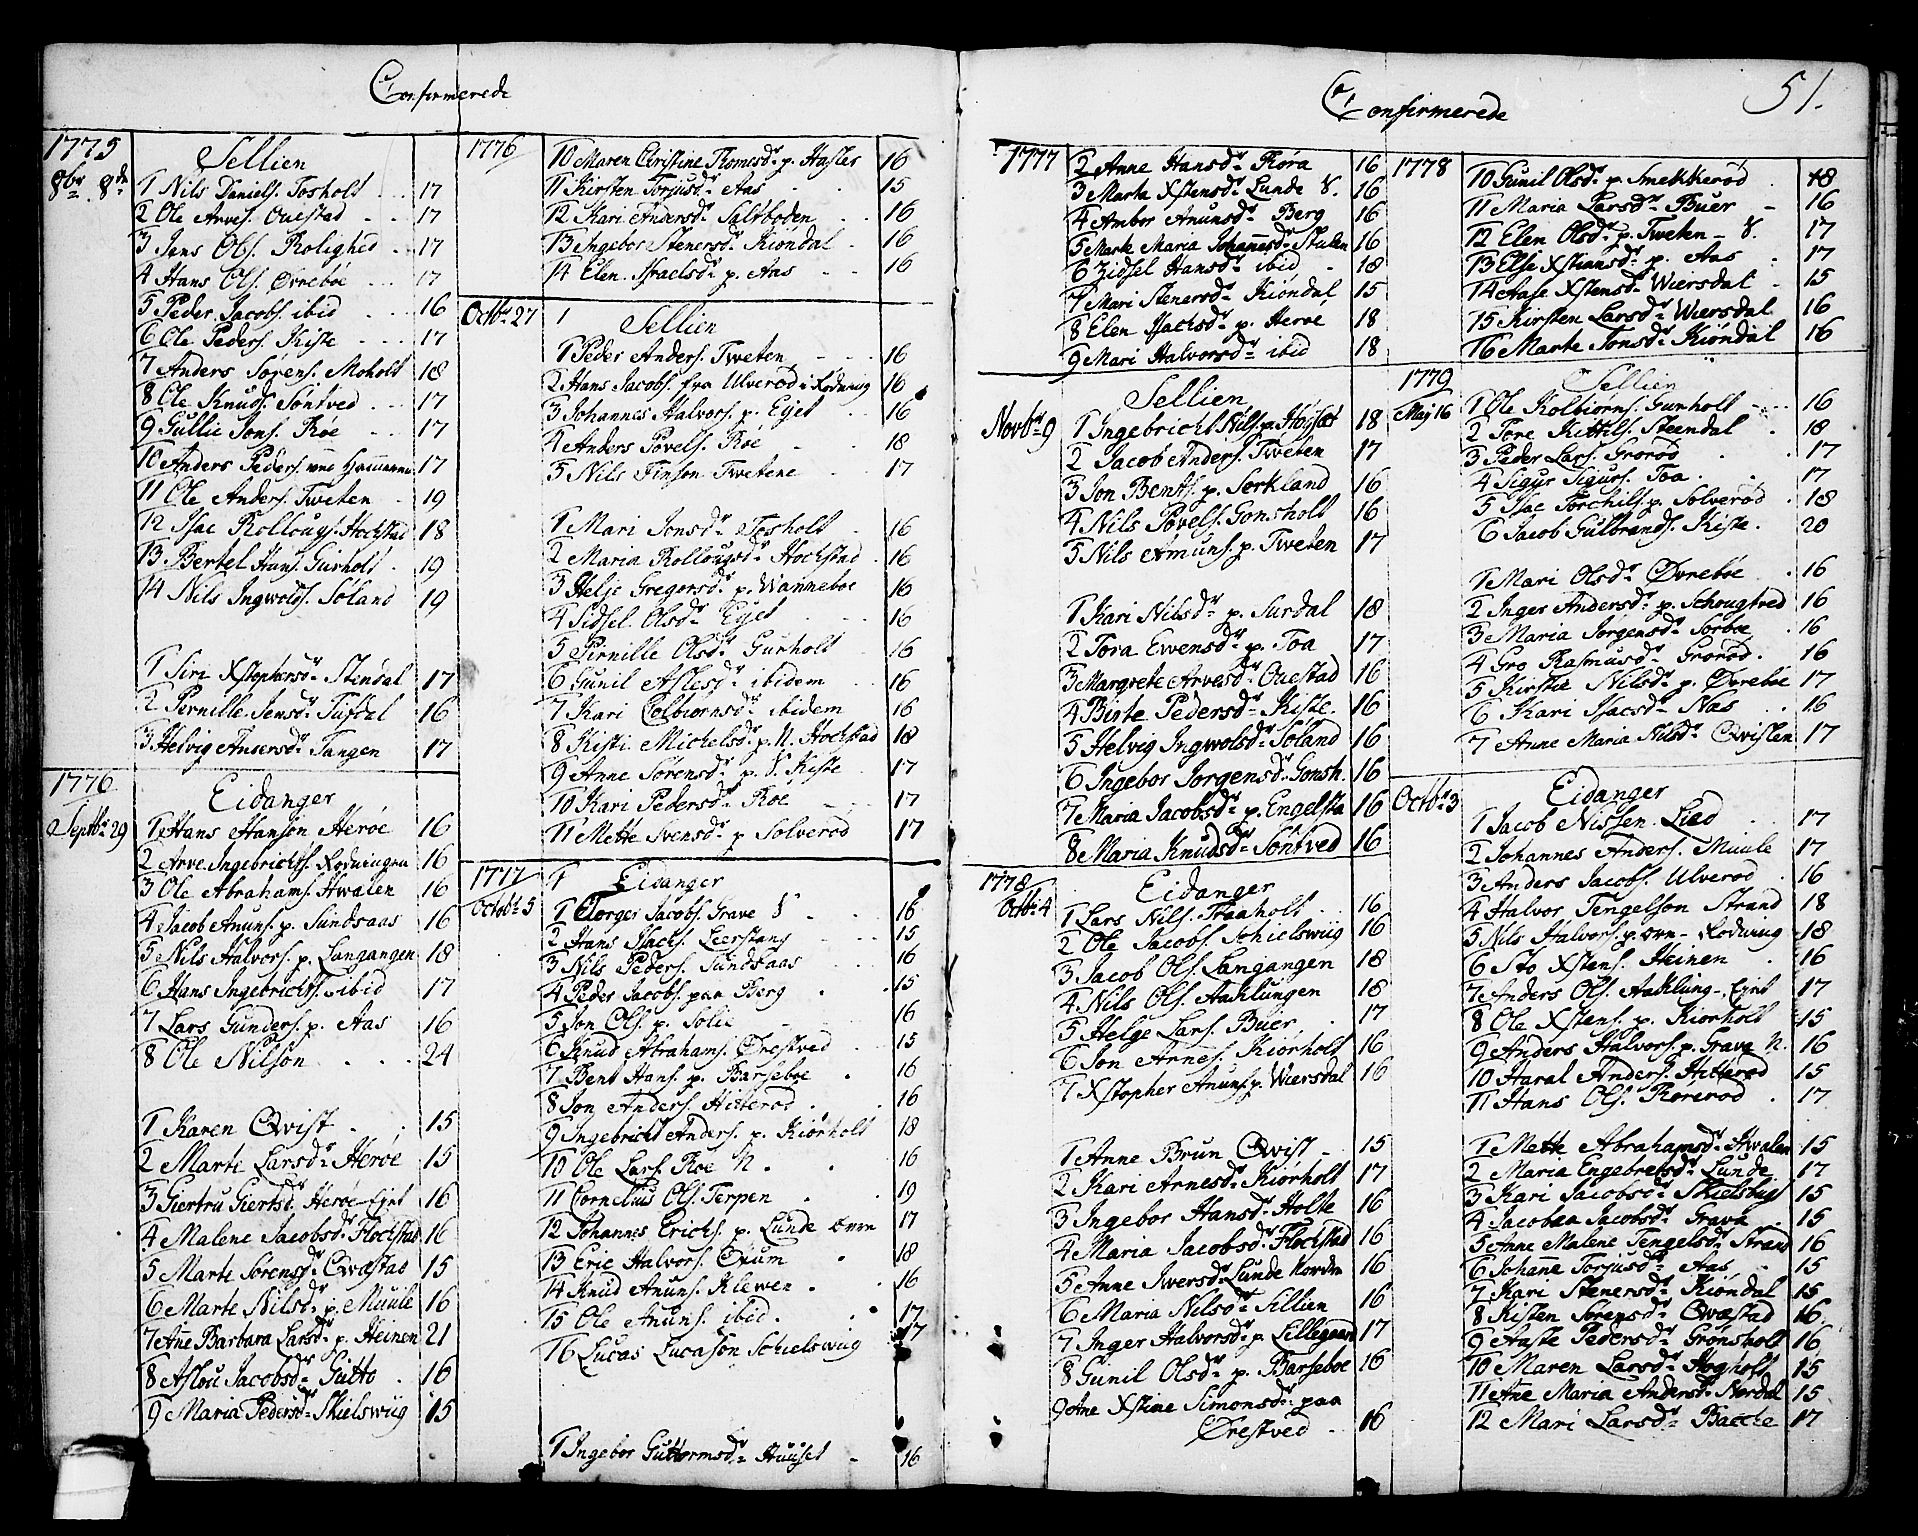 Confirmerede
1775
8br. 8de
Sellien
1 Nils Daniels. Tosholt 17
2 Ole Arves. Ouestad 17
3 Jens Ols. Rolighed 17
4 Hans Ols. Ovrebøe 17
5 Peder Jacobs. ibid 16
6 Ole Peders. Kiste 17
7 Anders Sørens. Moholt 18
8 Ole Knuds. Søntved 17
9 Gullic Jons. Røe 17
10 Anders Peders. 17
11 Ole Anders. Tweten 19
12 Isac Rollougs. Hochstad 18
13 Bertel Hans. Gurholt 19
14 Nils Ingwolds. Søland 19
1 Siri Xstophersdr Stendal 17
2 Pernille Jensdr Tufdal 16
3 Helvig Ansersdr Tangen 17
1776
Septbr 29
Eidanger
1 Hans Hansøn Herøe 16
2 Arve Ingebrichts. Rodningen 16
3 Ole Abrahams. Hwalen 16
4 Jacob Anuns. p. Sundsaas 16
5 Nils Halvors. p. Langangen 18
6 Hans Ingebrichts. ibid 17
7 Lars Gunders. p. Aas 16
8 Ole Nilsøn 24
1 Karen Qvist 15
2 Marte Larsdr Herøe 15
3 Giertru Giertsdr Herøe Ejet 16
4 Malene Jacobsdr Flochstad 16
5 Marte Sørensdr Qwæstad 15
6 Marte Nilsdr p. Muule 16
7 Ane Barbara Larsdr p. Heinen 21
8 Aslou Jacobsdr Gutto 16
9 Maria Pedersdr Skielswiig 15
1776
10 Maren Christine Thomesdr p. Hasler 16
11 Kirsten Torjusdr Aas 15
12 Kari Ansersdr Saltboden 16
13 Ingebor Stenersdr Kiøndal 16
14 Elen Israelsdr p. Aas 16
Octbr 27
Sellien
1 Peder Anders. Tweten 16
2 Hans Jacobs. fra Ulverød i Rodning 16
3 Johannes Halvors. p. Ejet 16
4 Anders Povels. Røe 18
5 Nils Finsøn Twetene 17
1 Mari Jonsdr Tosholt 16
2 Maria Rollougsdr Hochstad 16
3 Helje Gregersdr p. Wanneboe 16
4 Sidsel Olsdr Ejet 16
5 Pirnille Olsdr Gurholt 16
6 Gunil Aslesdr ibidem 16
7 Kari Colbiørnsdr ibidem 16
8 Kisti Michelsdr p. N. Hochstad 18
9 Anne Sørensdr p. S. Kiste 17
10 Kari Pedersdr Roe 17
11 Mette Svensdr p Solverød 17
1777
Octobr 5
Eidanger
1 Torger Jacobs. Grave S 16
2 Hans Isachs. Leerstang 15
3 Nils Peders. Sundsaas 16
4 Peder Jacobs. paa Berg 15
5 Jon Ols. p. Solie 16
6 Knud Abrahams. Ørestved 15
7 Bent Hans. p. Barseboe 16
8 Jon Anders. Hitterød 16
9 Ingebricht Anders. p. Kiørholt 18
10 Ole Lars. Roe N. 16
11 Cornelius Ols. Terpen 19
12 Johannes Erichs. p. Lunde øvre 17
13 Eric Halvors. Ørum 18
14 Knud Anuns. Klewen 16
15 Ole Anuns. ibid. 17
16 Lucas Lucasøn Schielswiig 17
1 Ingebor Guttormsdr Huuset 16
51.
Confirmerede
1777
2 Anne Hansdr Røra 16
3 Marta Xstensdr Lunde S. 16
4 Ambor Anunsdr Berg 16
5 Marte Maria Johannesdr Stulen 16
6 Zidsel Hansdr ibid 18
7 Mari Stenersdr Kiondal 15
8 Elen Isachsdr p. Herøe 18
9 Mari Halvorsdr ibid 18
Novbr 9
Sellien
1 Ingebricht Nils. p. Høyset 18
2 Jacob Anders. Tweten 17
3 Jon Bents. p. Sørkland 16
4 Nils Povels. Gonsholt 16
5 Nils Amuns. p. Tweten 17
1 Kari Nilsdr p. Surdal 18
2 Tora Ewensdr p. Toa 17
3 Margrete Arvesdr Ouestad 16
4 Birte Pedersdr Kiste. 16
5 Helvig Ingwolsdr Søland 16
6 Ingebor Jørgensdr Gonsh. 16
7 Maria Jacobsdr p. Engelsta 16
8 Maria Knudsdr Søntved 16
1778
Octbr 4
Eidanger
1 Lars Nils. Traaholt 16
2 Ole Jacobs. Schielswiig 16
3 Jacob Ols. Langangen 18
4 Nils Ols. Aaklungen 18
5 Helge Lars. Buer 17
6 Jon Arnes. Kiørholt 16
7 Xstopher Anuns. p. Wiersdal 16
1 Anne Brun Qvist 15
2 Kari Arnesdr Kiørholt 17
3 Ingebor Hansdr Holte 16
4 Maria Jacobsdr Flochstad 16
5 Anne Iwersdr Lunde Nordre 16
6 Maria Nilsdr Sillien 16
7 Inger Halvorsdr p. Lillegaan 17
8 Gunil Olsdr p. Barseboe 16
9 Ane Xstine Simonsdr paa
Ørestved 16
1778
10 Gunil Olsdr p. Smekkerød 18
11 Maria Larsdr Buer 16
12 Elen Olsdr p. Tweten S. 17
13 Else Xstiansdr p. Aas 17
14 Aase Xstensdr Wiersdal 15
15 Kirsten Larsdr Wiersdal 16
16 Marte Jonsdr Kiøndal 16
1779
Maj 16
Sellien
1 Ole Kolbiørns. Gurholt 16
2 Tore Kittils. Steendal 18
3 Peder Lars. Grorød 17
4 Sigur Sigurs. Toa 17
5 Isac Torchils. p. Solverød 18
6 Jacob Gulbrands. Kiste. 20
1 Mari Olsdr Øvrebøe 16
2 Inger Andersdr p. Schougtved 16
3 Maria Jørgensdr Sorbøe 16
4 Gro Rasmusdr Grorød. 16
5 Kirstie Nilsdr p. Ovrebøe 17
6 Kari Isacsdr Næs 16
7 Anne Maria Nilsdr Qvisten 17
Octbr 3
Eidanger
1 Jacob Nissen Lied 17
2 Johannes Anders. Muule 17
3 Anders Jacobs. Ulverød 16
4 Halvor Tengelsøn Strand 18
5 Nils Halvors. p. ovn Rodning 18
6 Sto Xstens. Heinen 16
7 Anders Ols. Aaklung Ejet 17
8 Ole Xstens. p. Kiørholt 15
9 Anders Halvors. p. Grava N. 16
10 Haral Anders. Hitterød 15
11 Hans Ols. Rørerød 17
1 Mette Abrahamsdr Hwalen 15
2 Maria Engebretsdr Lunde 17
3 Kari Jacobsdr Skielsvig 15
4 Jacobaa Jacobsdr Grava 15
5 Anne Malene Tengelsdr Strand 16
6 Johane Torjusdr Aas 15
7 Kari Stenersdr Kiøndal 15
8 Kisten Sørensdr Qwæstad 16
9 Aaste Pedersdr Grønsholt 16
10 Maren Larsdr Høgholt 15
11 Ane Maria Andersdr Nordal 15
12 Mari Larsdr Bacche 17